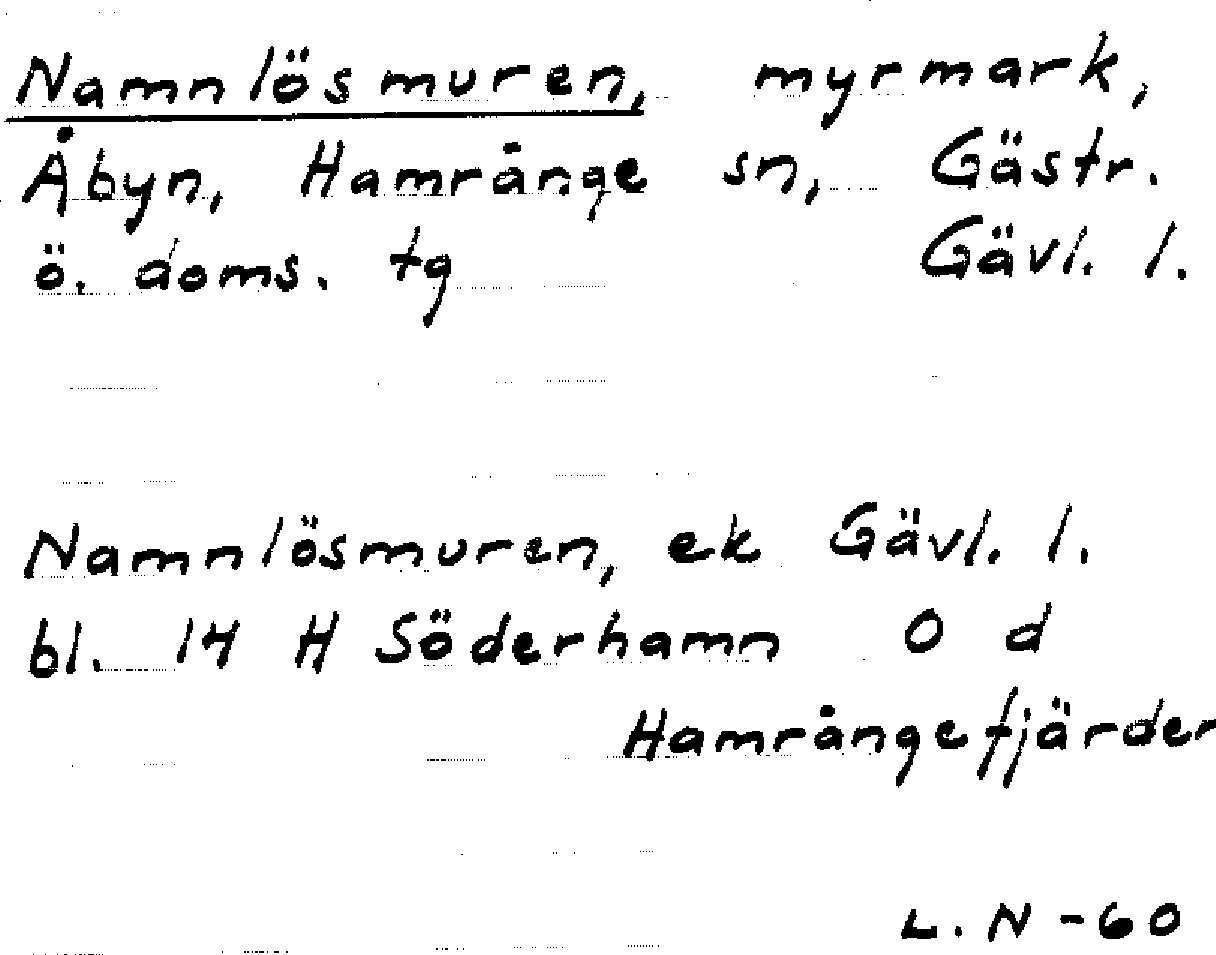 Namnlösmuren, myrmark,
Åbyn, Hamrånge sn, Gästr.
ö. doms. tg Gävl. l.
Namnlösmuren, ek Gävl. l.
bl. 14 H Söderhamn 0 d
Hamrångefjärder
L. N -60